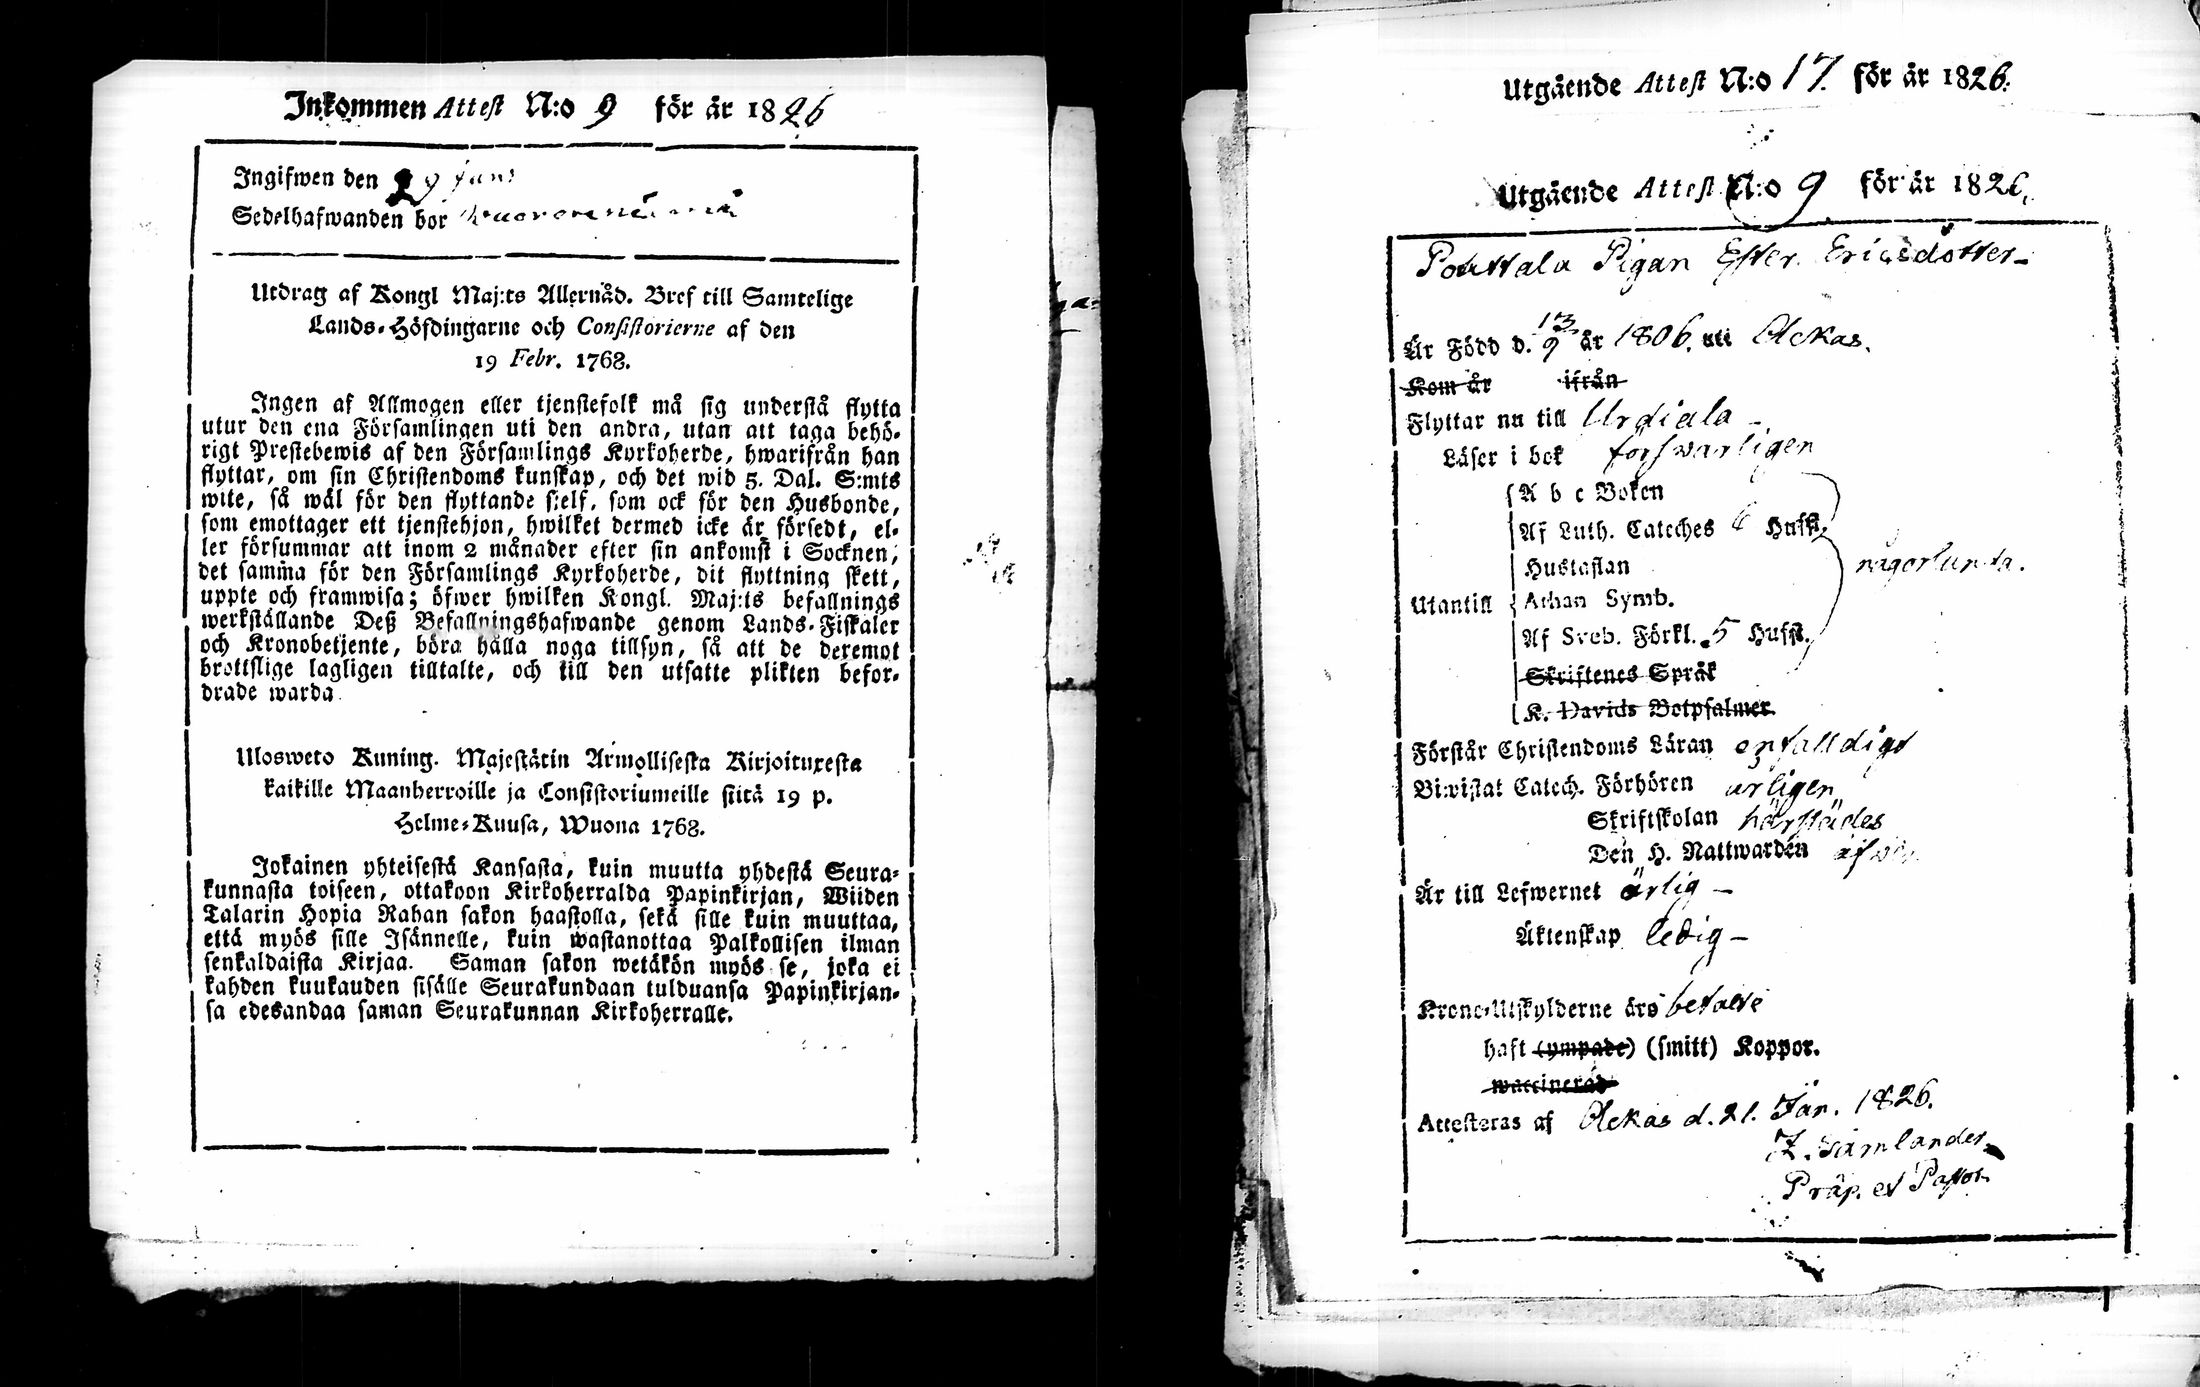 Inkommen Attest N:o 9 för år 1826
Ingifwen den 29 Janr
Sedelhafwanden bor
Utdrag af Kongl Maj:ts Allernåd. Bref till Samtelige
Lands-Höfdingarne och Consistorierne af den
19 Febr. 1768.
Ingen af Allmogen eller tjenstefolk må sig understå flytta
utur den ena Församlingen uti den andra, utan att taga behö-
rigt Prestebewis af den Församlings Kyrkoherde, hwarifrån han
flyttar, om sin Christendoms kunskap, och det wid 5. Dal. S:mts
wite, så wäl för den flyttande sjelf, som ock för den Husbonde,
som emottager ett tjenstehjon, hwilket dermed icke är försedt, el-
ler försummar att inom 2 månader efter sin ankomst i Socknen,
det samma för den Församlings Kyrkoherde, dit flyttning skett,
uppte och framwisa; öfwer hwilken Kongl. Maj:ts befallnings
werkställande Deß Befallningshafwande genom Lands-Fiskaler
och Kronobetjente, böra hålla noga tillsyn, så att de deremot
brottslige lagligen tilltalte, och till den utsatte plikten befor-
drade warda
Ulosweto Kuning. Majestätin Armollisesta Kirjoituxesta
kaikille Maanherroille ja Consistoriumeille siitä 19 p.
Helme-Kuusa, Wuona 1768.
Jokainen yhteisestä Kansasta, kuin muutta yhdestä Seura-
kunnasta toiseen, ottakoon Kirkoherralda Papinkirjan, Wiiden
Talarin Hopia Rahan sakon haastolla, sekä sille kuin muuttaa,
että myös sille Isännelle, kuin wastanottaa Palkollisen ilman
senkaldaista Kirjaa. Saman sakon wetäkön myös se, joka ei
kahden kuukauden sisälle Seurakundaan tulduansa Papinkirjan-
sa edesandaa saman Seurakunnan Kirkoherralle.
Utgående Attest N:o 17. för år 1826.
Utgående Attest N:o 9 för år 1826.
Pouttala Pigan Ester Ericsdotter
Är Född d. 13/9 år 1806. uti Ackas.
Kom år ifrån
Flyttar nu till Urdiala
Läser i bok försvarligen
A b c Boken
Af Luth. Cateches 6 Hufst.
Hustaflan
någorlunda.
Utantill Athan Symb.
Af Sveb. Förkl. 5 Hufst.
Skriftenes Språk
K. Davids Botpsalmer
Förstår Christendoms Läran enfalldigt
Biwistat Catech. Förhören årligen
Skriftskolan härstädes
Den H. Nattwarden
Är till Lefwernet ärlig
Äktenskap ledig
Krono-Utskylderne äro betalte
haft (ympade) (smitt) Koppor.
waccinerad
Attesteras af Ackas d. 21. Jan. 1826.
Z. Gamlander
Präp. et Pastor